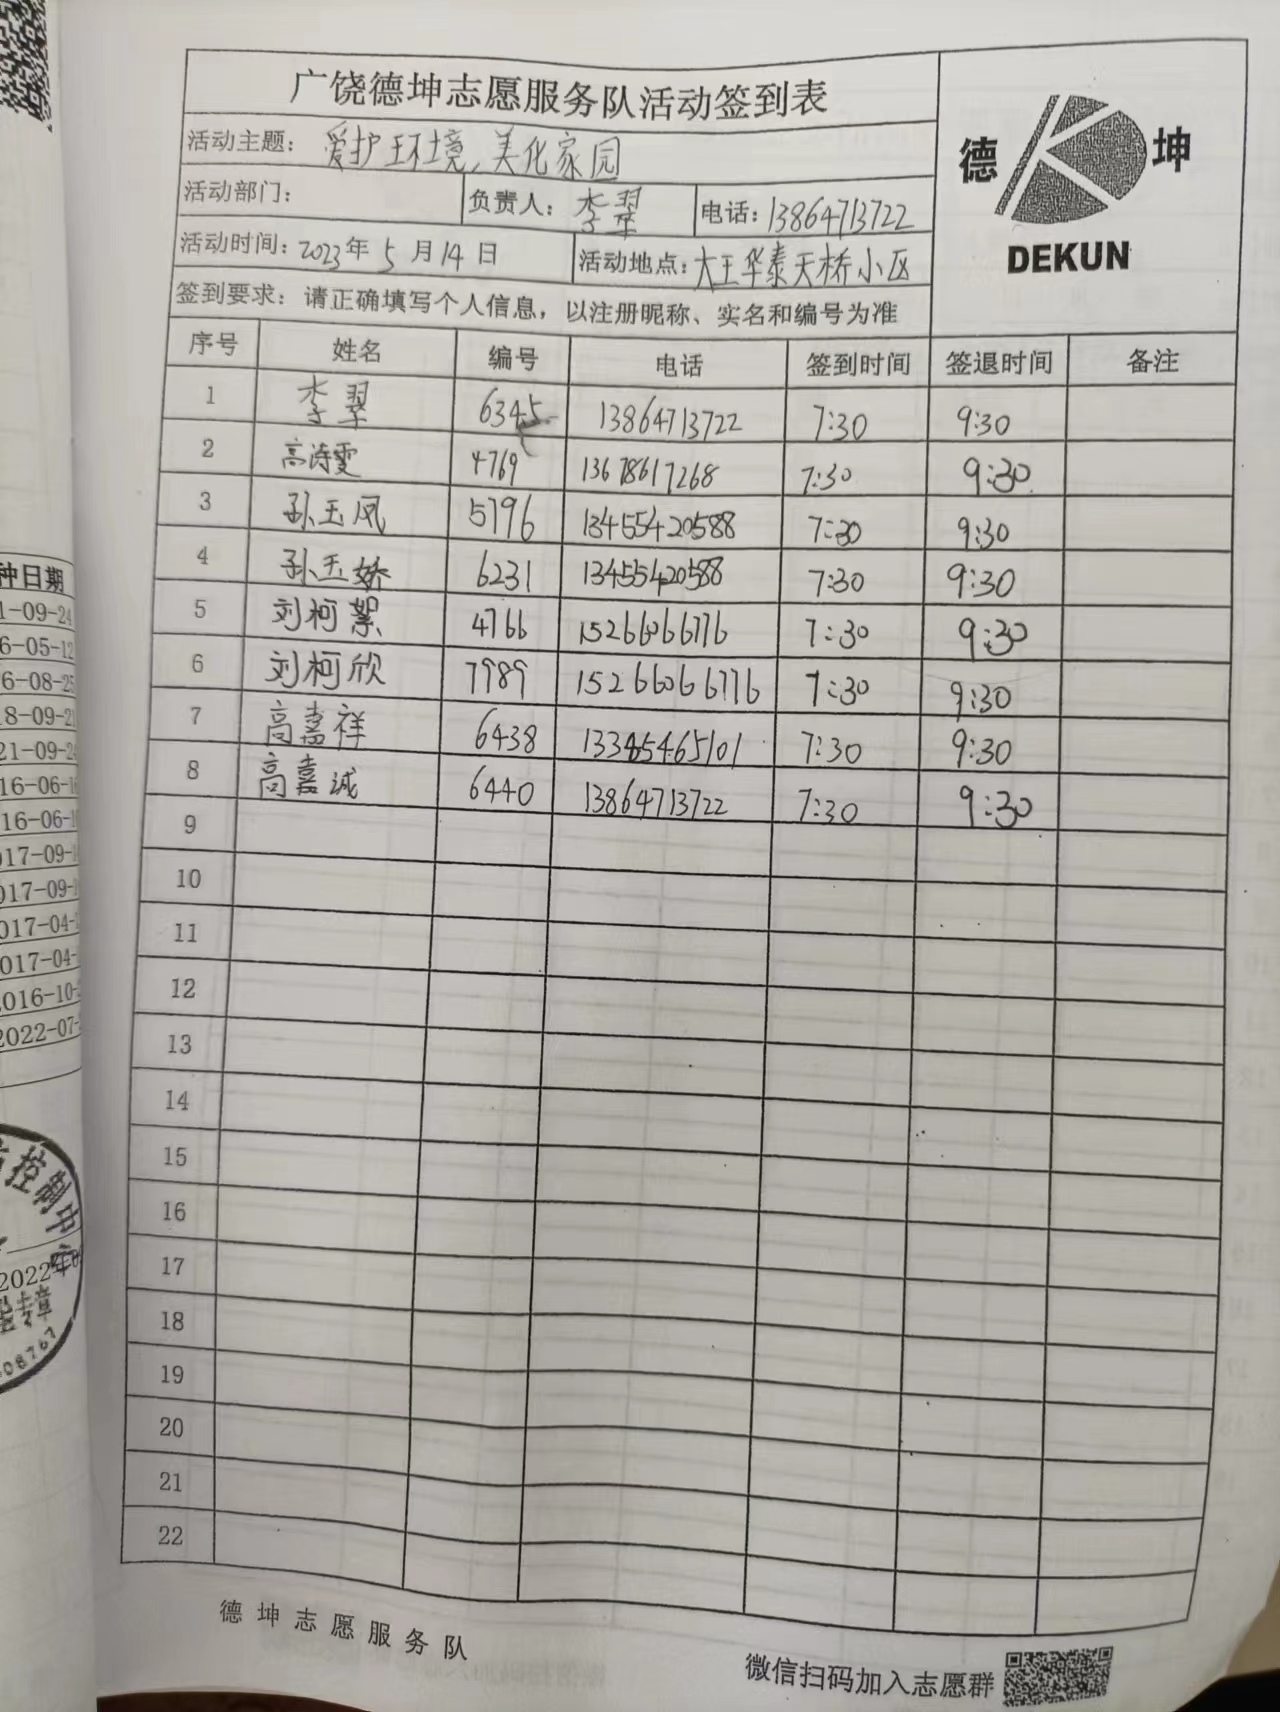 广饶德坤志愿服务队活动签到表
德 坤
DEKUN
活动主题： 爱护环境，美化家园
活动部门： 负责人： 李翠 电话：13864713722
活动时间：2023年 5 月 14 日 活动地点：大王华泰天桥小区
签到要求：请正确填写个人信息，以注册昵称、实名和编号为准
序号 姓名 编号 电话 签到时间 签退时间 备注
1 李翠 6345 13864713722 7:30 9:30
2 高涛雯 4769 13678617268 7:30 9:30
3 孙玉凤 5796 13455420588 7:30 9:30
4 孙玉娇 6231 13455420588 7:30 9:30
5 刘柯絮 4766 15266066776 7:30 9:30
6 刘柯欣 7989 15266066776 7:30 9:30
7 高嘉祥 6438 13345465101 7:30 9:30
8 高嘉诚 6440 13864713722 7:30 9:30
9
10
11
12
13
14
15
16
17
18
19
20
21
22
德坤志愿服务队
微信扫码加入志愿群
种日期
1-09-24
6-05-12
6-08-25
8-09-21
21-09-24
16-06-16
16-06-16
017-09-
017-09-
017-04-
017-04-
2016-10-
2022-07-
控制中
2022年
专章
08767